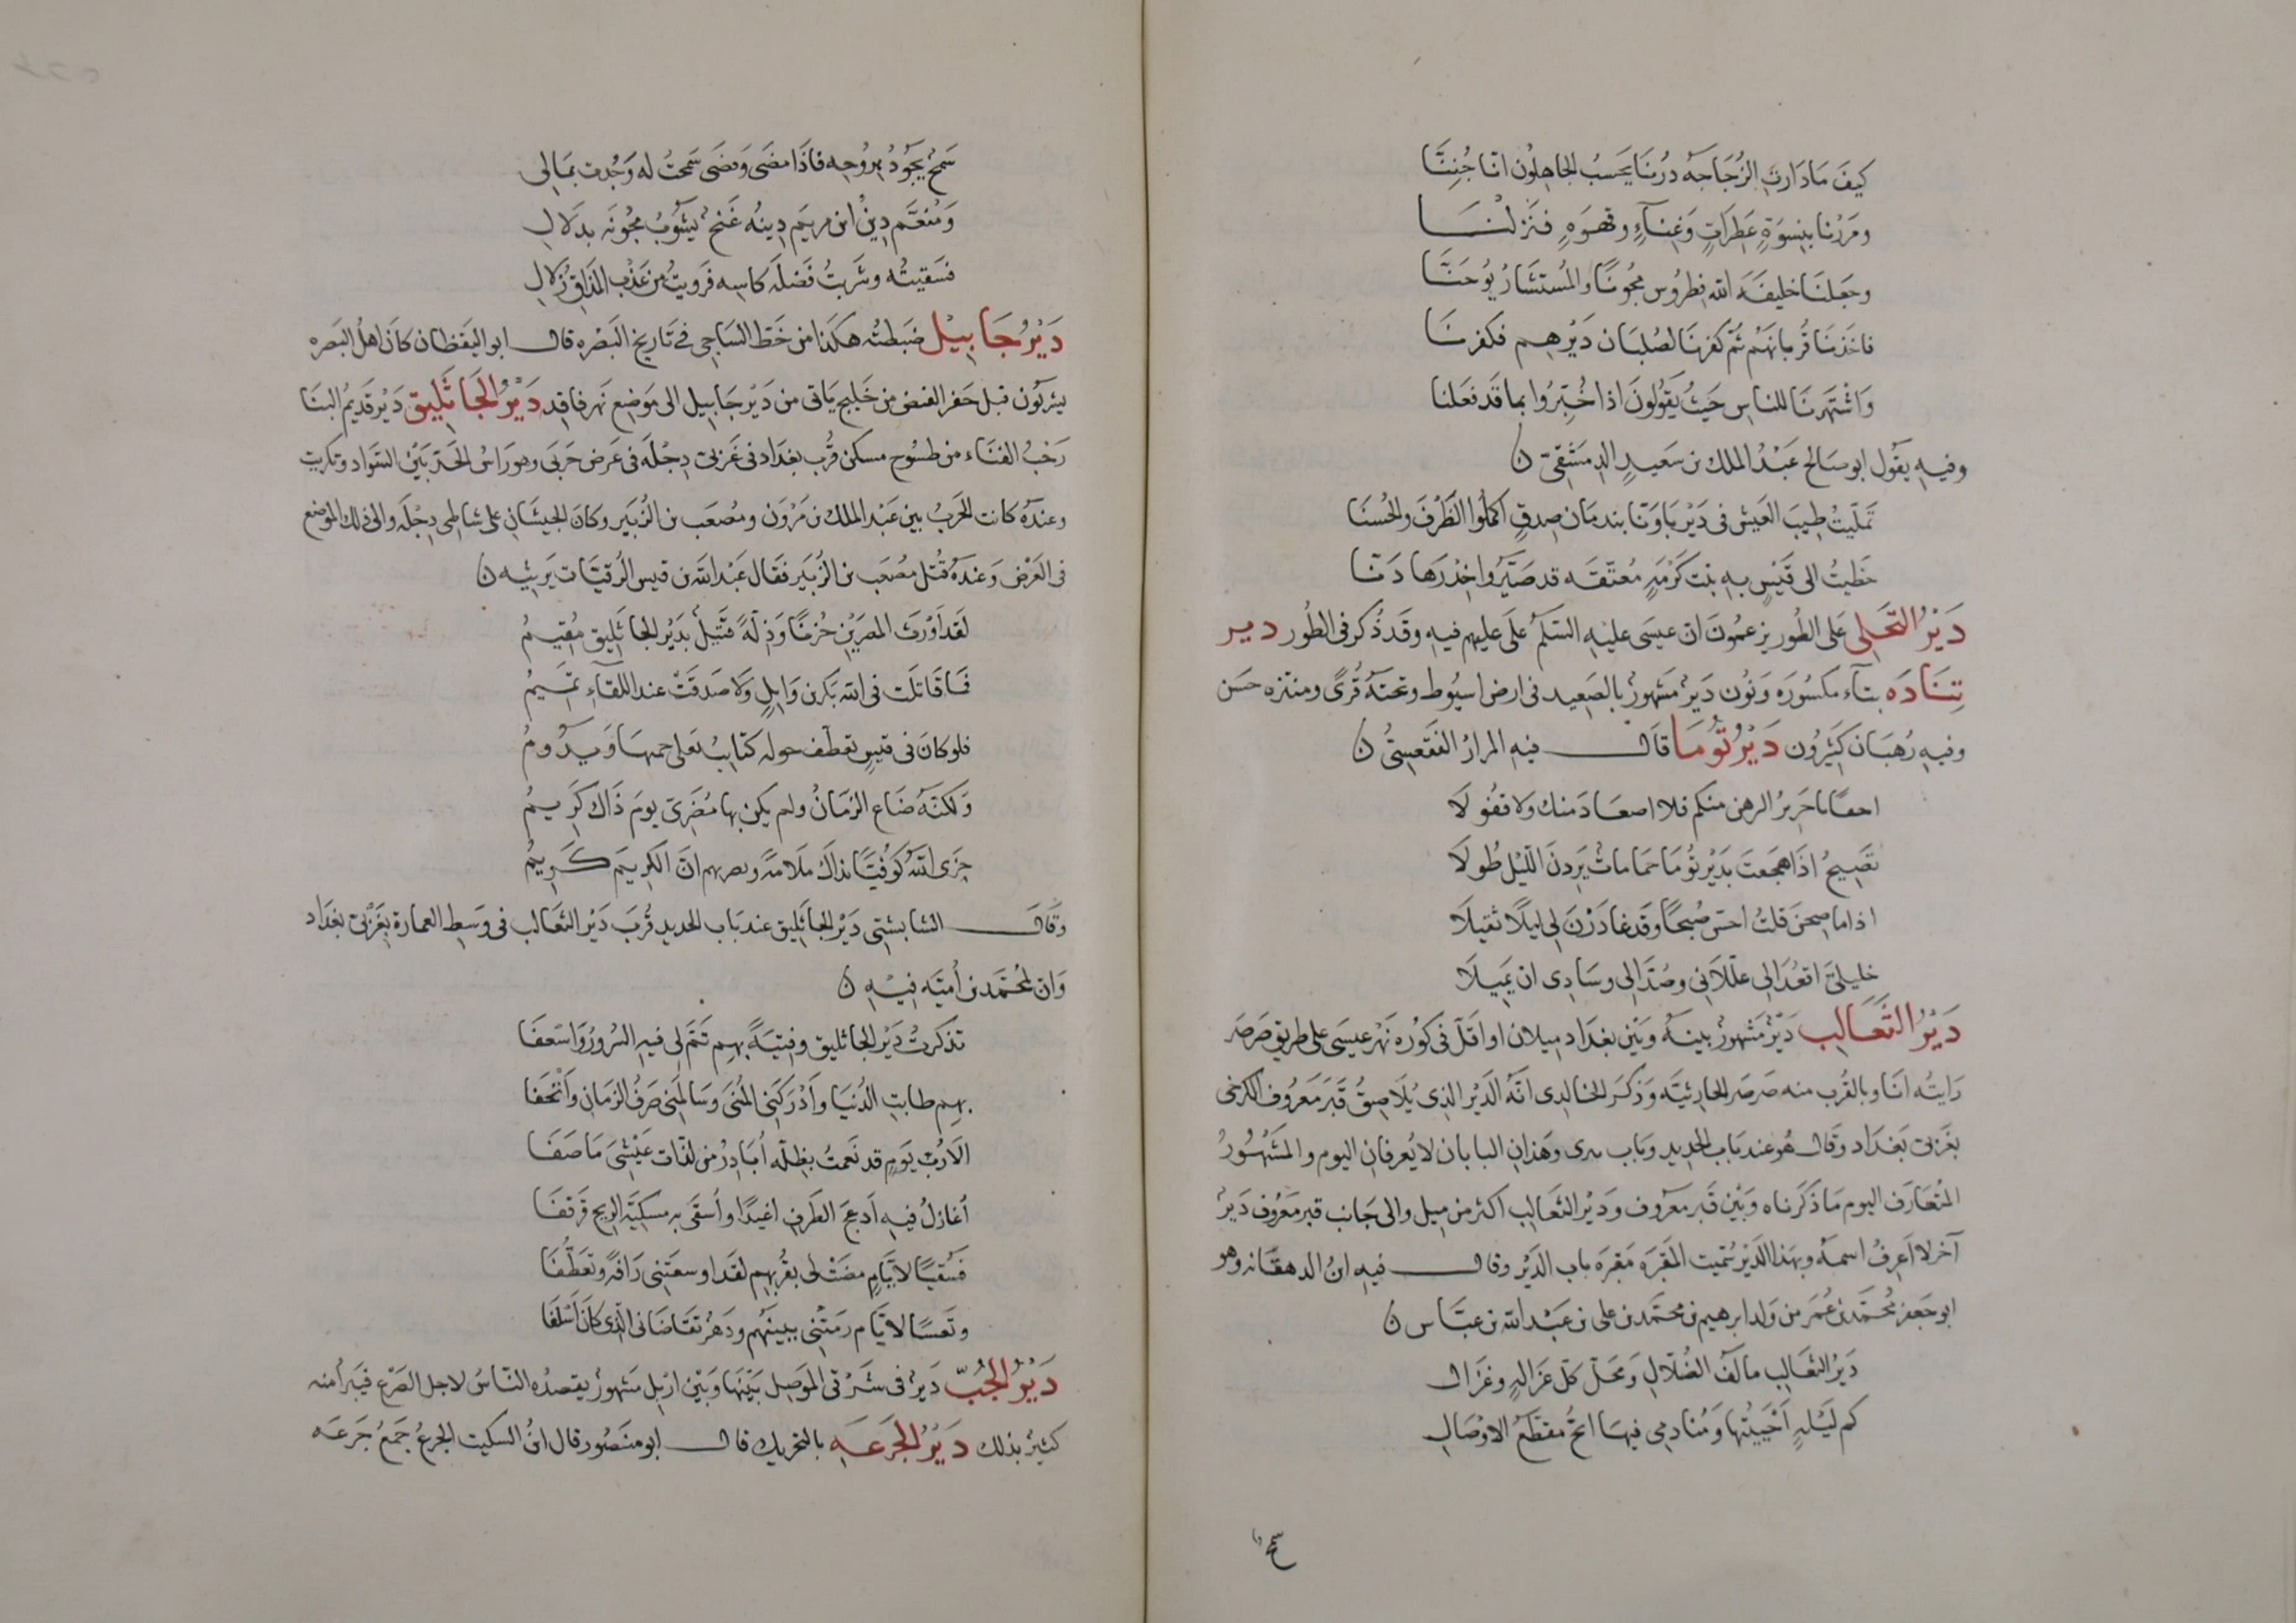 كيفَ مَا دَارتِ الزُجَاجَه دُرنَا يَحَسبُ الجاهِلُون انّا جُنِنَّا
ومَرَرْنا بنِسوَةٍ عَطِرَاتٍ وَغِنَاءٍ وقهوَةٍ فنَزلْنَا
وجَعَلنَا خليفَةَ الله فطرُوس مجُونًا والمُستشَارُ يُوحَنَّا
فاخَذنَا قُربانَهُم ثم كفرنَا لصُلبَان دَيْرهِم فكفرنَا
وَاشْتَهرنَا للناسِ حَيثُ يَقُولونَ اذا خُبِّرُوا بما قَد فعَلنا
وفيهِ يقوُل ابو صَالح عَبْدُ الملك بن سَعيدٍ الدمَشقِيّ ن
تملّيتُ طِيبَ العَيش فى دَيْر بَاوَنّا بندمَان صِدقٍ اكملُوا الظَرْفَ والحُسنَا
خَطَبتُ الى قَيْسٍ به بنت كَرْمَةٍ مُعتّقَه قد صَيَّرُوا خِدرَهَا دَنّا
دَيْرُ التَجَلى عَلى الطُور يزعمُونَ ان عيسَى عليْهِ السَّلَم عَلَى عليهم فيهِ وقَد ذُكر فى الطُور دير
تِنَادَه بتآء مكسُورَه وَنُون دَيرٌ مَشهورٌ بالصَعِيد فى ارض اسيُوط وتحتَهُ قُرًى ومنتزه حسَن
وفيهِ رُهبَان كثيرُون دَيْرُ تُومَا قاَل فيهِ المرارُ الفَقعَسِىُّ ن
احقًا يا حَرِيزُ الرهن منكم فلا اصعَادَ منك وَلا قفُولَا
تصِيحُ اذَا هجَعتَ بدَيْر تُومَا حَمَامَاتٌ يَردنَ اللّيْل طُولَا
اذا ما صِحنَ قلتُ احسّ صُبحًا وَقَد غادَرْنَ لِى ليلًا ثقيلَا
خليليَّ اقعُدَا لِى علّلاَنى وصُدَّا لِى وسَادِى ان يَميلَا
دَيْرُ الثَّعَالِب دَيْرٌ مَشهورٌ بينهُ وَبَيْن بغدَاد ميلان او اقَلّ فى كُورَه نَهْر عيسَى على طريق صَرصَر
رَايتُه انَا وبالقُرب منه صَرصَر الحارثيَّه وَذكرَ الخالِدى انّهُ الَديْر الذِى يُلَاصِقُ قبَر مَعرُوف الكرخى
بغَربى بَغدَاد وقَال هُو عند بَاب الحدِيد وبَاب برى وهَذانِ البابان لا يُعرفانِ اليوم والمشَهُورُ
المُتعَارَف اليوم مَا ذكرنَاه وَبَيْن قبَر معرُوف ودَيْر الثعَالِب اكثر من مِيل والى جَانب قبر معرُوف دَيْر
آخر لا اَعرفُ اسمهُ وبهذا الدَيْر سُمّيت المَقبَرَه مَقبَرَه باب الدَيْر وقال فيهِ ابنُ الدهقَانه وهو
ابو جعفر مُحمَّد بن عُمَر من وَلد ابرهيم بن محمّد بن على بن عَبْد الله بن عبّاس ن
دَيرُ الثعَالِب مالفُ الضُلّالِ وَمحَلّ كلّ غزَالةٍ وغزَال
كم لَيْلةٍ اَحْيَيتُها وَمُنادمِى فيهَا ابحُّ مقطّعُ الاوْصَالِ
سمحٌ يَجوُدُ برُوحِه فاذَا مضَى وَقضَى سَمَحتُ له وَجُدت بمَالى
وَمُنعَّم دِينُ ابن مريَم دِينُه غَنجٌ يشُوبُ مجُونَه بدَلالِ
فسَقيتُه وشَربتُ فَضلَه كاسِه فَرويتُ من عَذْب المذَاقِ زُلالِ
دَيْرُ جَابِيْل ضبَطتُه هكَذا من خَط السَاجى فى تَاريخ البَصْره قال ابو اليَقظان كاَنَ اهلُ البَصره
يشربُون قبل حَفر الفيض من خَليج يَاتى من دَيْر جَابيل الى مَوضِع نَهر نافذ دَيْرُ الجَاثَلِيق دَيْر قَديمُ البنَا
رَحبُ الفنَاء من طسُوج مسكن قُرب بغدَاد فى غَربى دِجْلَه فى عَرض حَربَى وهوَ رَاسُ الحَدّ بَيْن السَوَاد وتكريت
وعندَهُ كانت الحَربُ بين عَبْد الملك بن مَرْوَن ومُصعَب بن الزُبَيْر وكانَ الجيشَانِ على شاطِى دِجْلَه والى ذلك الموضِع
فى العَرْض وَعندَهُ قُتل مصُعَب بن الزُبَيْر فقَال عَبْد الله بن قيس الرُقيّات يَرثيه ن
لقَد اَوْرَثَ المصرَيْنِ حُزنًا وَذِلَّهً قتيلٌ بدَيْر الجاثَلِيق مُقيمُ
فَمَا قَاتَلت فى الله بَكر بن وَايلٍ وَلا صَدقَتْ عند اللقَآءِ تَمِيمُ
فلو كانَ فى قيسٍ تعَطّف حَوله كتايبُ يعلى حميهَا وَيدُومُ
وَلكنّه ضَاع الزمَانُ ولم يكن بها مُضَرىّ يومَ ذَاك كَرِيمُ
جزَى اللّهُ كوفيّا بذاك مَلَامَهً وبصريهم انّ الكريمَ كَرِيمُ
وقَال الشابشتى دَيْر الجاثَلِيق عند بَاب الحديد قُربَ دَيْر الثعَالب فى وَسَطِ العمارة بغَرْبىّ بغدَاد
وَانّ لمحُمَّد بن أُميَّه فيْه ن
تذكرتُ دَيْر الجاثليق وفتيَةً بهِم تَمّ لى فيهِ السُرورُ وَاسْعَفَا
بهِم طابتِ الدُنيَا وَاَدْرَكَنى المُنَى وَسَالمَنى صَرفُ الزمَانِ وَاَتْحَفَا
اَلا رُبّ يَومٍ قد نَعمتُ بظِلّه أُبَادِرُ من لذّات عَيْشِىَ مَا صَفَا
أُغازلُ فيهِ اَدعجَ الطَرفِ اغيدًا واُسقَى به مسكيَّةَ الرِيح قَرقفَا
فسُقيًا لاَيَّامٍ مضَتْ لى بقُربهِم لقَد اوسعَتنى رَافَةً وتعَطّفَا
وتَعسًا لاَيّام رمَتْنى ببينهُم ودَهْرٍ تقَاضَانى الّذى كانَ اَسْلَفَا
دَيْرُ الجُبّ دَيرٌ فى شَرْقى المَوصِل بَيْنهَا وَبَيْن ارْبل مَشهورٌ يقصدُه النّاسُ لاجل الصَرْع فيَبرأ منه
كثيرٌ بذلك دَيْرُ الجَرَعَهِ بالتحريك قال ابو منَصُور قال ابنُ السكيت الجرَعُ جَمعُ جَرَعَه